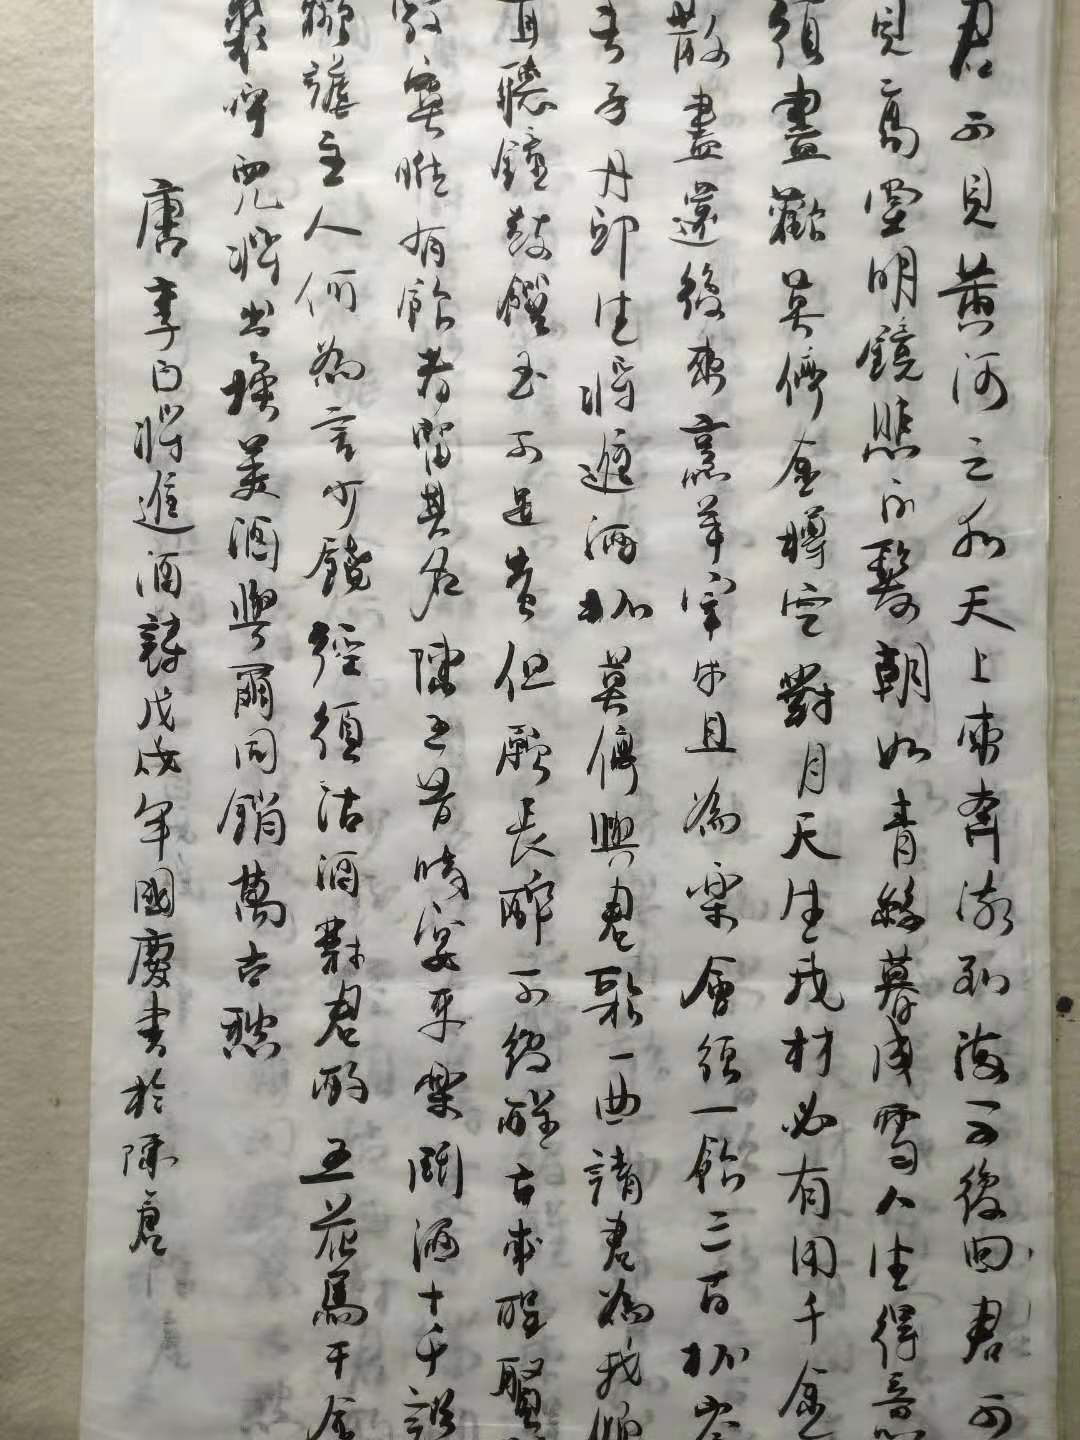 君不見黃河之水天上來奔流到海不復回君不
見高堂明鏡悲白髮朝如青絲暮成雪人生得意
須盡歡莫使金樽空對月天生我材必有用千金
散盡還復來烹羊宰牛且為樂會須一飲三百杯岑
夫子丹邱生將進酒杯莫停與君歌一曲請君為我傾
耳聽鐘鼓饌玉不足貴但願長醉不復醒古來聖賢
寂寞唯有飲者留其名陳王昔時宴平樂鬥酒十千恣
歡謔主人何為言少錢徑須沽酒對君酌五花馬千金
裘呼兒將出換美酒與爾同銷萬古愁
唐李白將進酒詩戊戌年國慶書於陳倉